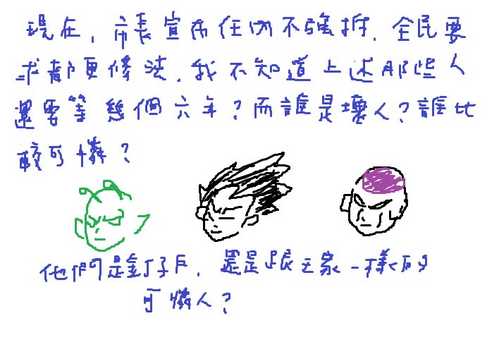 現在，市長宣布任內不強拆，全民要
求都更修法，我不知道上述那些人
還要等幾個六年？而誰是壞人？誰比
較可憐？
他們是釘子戶，還是跟王家一樣的
可憐人？